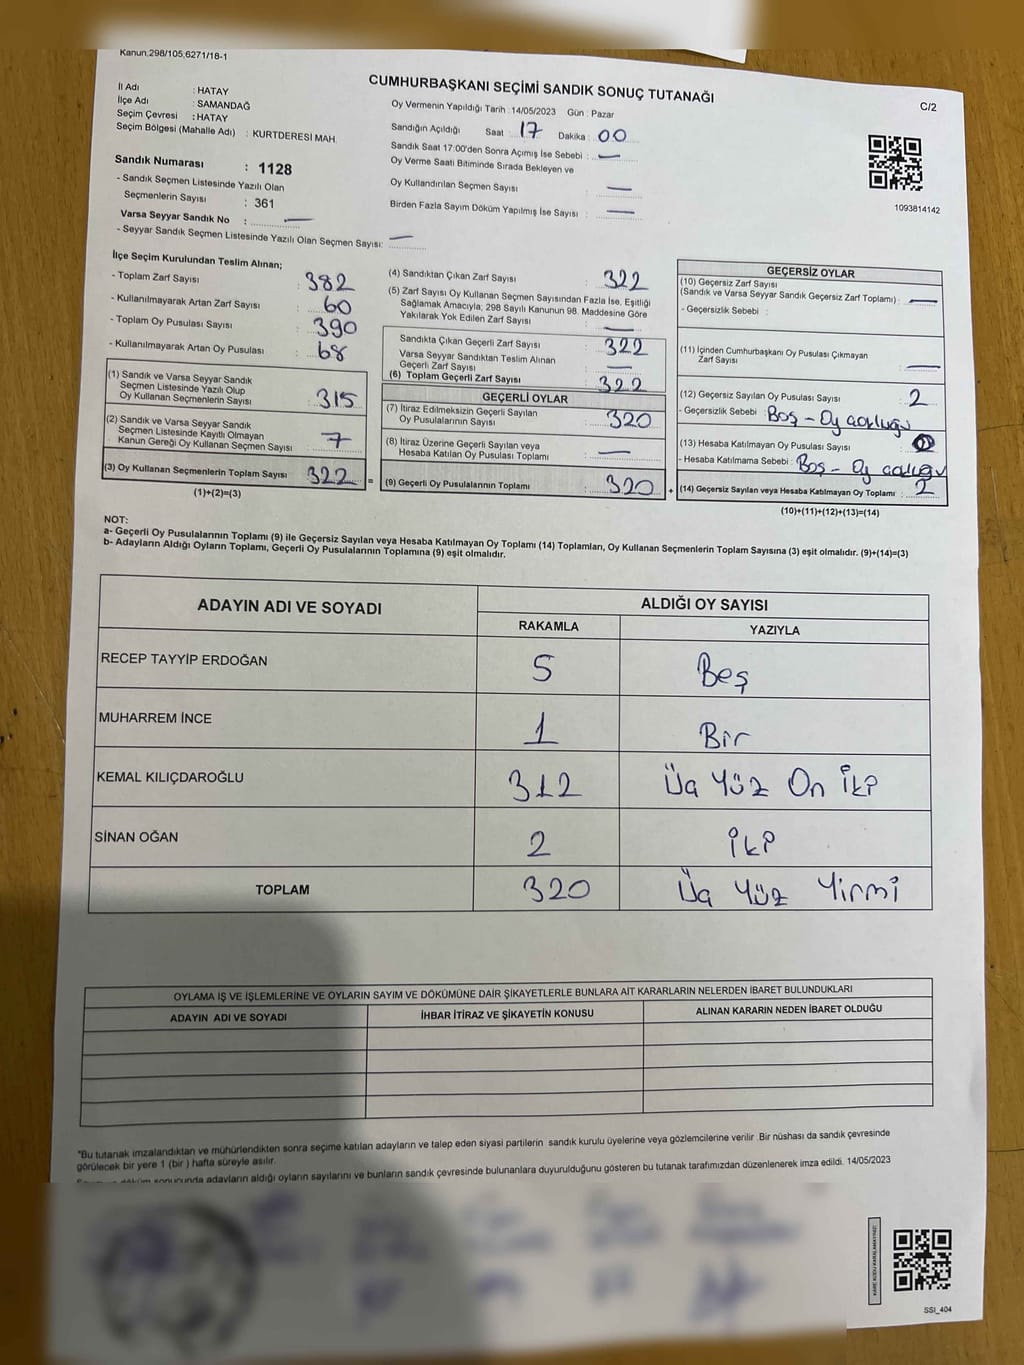 Kanun.298/105,6271/18-1
CUMHURBAŞKANI SEÇİMİ SANDIK SONUÇ TUTANAĞI
C/2
İl Adı : HATAY
İlçe Adı : SAMANDAĞ
Seçim Çevresi : HATAY
Seçim Bölgesi (Mahalle Adı) : KURTDERESİ MAH.
Sandık Numarası : 1128
- Sandık Seçmen Listesinde Yazılı Olan
Seçmenlerin Sayısı : 361
Varsa Seyyar Sandık No : —
- Seyyar Sandık Seçmen Listesinde Yazılı Olan Seçmen Sayısı: —
Oy Vermenin Yapıldığı Tarih : 14/05/2023 Gün : Pazar
Sandığın Açıldığı Saat : 17 Dakika : 00
Sandık Saat 17:00'den Sonra Açımış İse Sebebi : —
Oy Verme Saati Bitiminde Sırada Bekleyen ve
Oy Kullandırılan Seçmen Sayısı : —
Birden Fazla Sayım Döküm Yapılmış İse Sayısı : —
1093814142
İlçe Seçim Kurulundan Teslim Alınan;
- Toplam Zarf Sayısı : 382
- Kullanılmayarak Artan Zarf Sayısı : 60
- Toplam Oy Pusulası Sayısı : 390
- Kullanılmayarak Artan Oy Pusulası : 68
(1) Sandık ve Varsa Seyyar Sandık
Seçmen Listesinde Yazılı Olup
Oy Kullanan Seçmenlerin Sayısı : 315
(2) Sandık ve Varsa Seyyar Sandık
Seçmen Listesinde Kayıtlı Olmayan
Kanun Gereği Oy Kullanan Seçmen Sayısı : 7
(3) Oy Kullanan Seçmenlerin Toplam Sayısı : 322
(1)+(2)=(3)
(4) Sandıktan Çıkan Zarf Sayısı : 322
(5) Zarf Sayısı Oy Kullanan Seçmen Sayısından Fazla İse, Eşitliği
Sağlamak Amacıyla, 298 Sayılı Kanunun 98. Maddesine Göre
Yakılarak Yok Edilen Zarf Sayısı : —
Sandıkta Çıkan Geçerli Zarf Sayısı : 322
Varsa Seyyar Sandıktan Teslim Alınan
Geçerli Zarf Sayısı : —
(6) Toplam Geçerli Zarf Sayısı : 322
GEÇERLİ OYLAR
(7) İtiraz Edilmeksizin Geçerli Sayılan
Oy Pusulalarının Sayısı : 320
(8) İtiraz Üzerine Geçerli Sayılan veya
Hesaba Katılan Oy Pusulası Toplamı : —
= (9) Geçerli Oy Pusulalarının Toplamı : 320
GEÇERSİZ OYLAR
(10) Geçersiz Zarf Sayısı
(Sandık ve Varsa Seyyar Sandık Geçersiz Zarf Toplamı) : —
- Geçersizlik Sebebi :
(11) İçinden Cumhurbaşkanı Oy Pusulası Çıkmayan
Zarf Sayısı : —
(12) Geçersiz Sayılan Oy Pusulası Sayısı : 2
- Geçersizlik Sebebi : Boş - Oy
(13) Hesaba Katılmayan Oy Pusulası Sayısı :
- Hesaba Katılmama Sebebi : Boş - Oy
+ (14) Geçersiz Sayılan veya Hesaba Katılmayan Oy Toplamı : 2
(10)+(11)+(12)+(13)=(14)
NOT:
a- Geçerli Oy Pusulalarının Toplamı (9) ile Geçersiz Sayılan veya Hesaba Katılmayan Oy Toplamı (14) Toplamları, Oy Kullanan Seçmenlerin Toplam Sayısına (3) eşit olmalıdır. (9)+(14)=(3)
b- Adayların Aldığı Oyların Toplamı, Geçerli Oy Pusulalarının Toplamına (9) eşit olmalıdır.
ADAYIN ADI VE SOYADI
ALDIĞI OY SAYISI
RAKAMLA YAZIYLA
RECEP TAYYİP ERDOĞAN 5 Beş
MUHARREM İNCE 1 Bir
KEMAL KILIÇDAROĞLU 312 Üç Yüz On İki
SİNAN OĞAN 2 İki
TOPLAM 320 Üç Yüz Yirmi
OYLAMA İŞ VE İŞLEMLERİNE VE OYLARIN SAYIM VE DÖKÜMÜNE DAİR ŞİKAYETLERLE BUNLARA AİT KARARLARIN NELERDEN İBARET BULUNDUKLARI
ADAYIN ADI VE SOYADI İHBAR İTİRAZ VE ŞİKAYETİN KONUSU ALINAN KARARIN NEDEN İBARET OLDUĞU
"Bu tutanak imzalandıktan ve mühürlendikten sonra seçime katılan adayların ve talep eden siyasi partilerin sandık kurulu üyelerine veya gözlemcilerine verilir .Bir nüshası da sandık çevresinde
görülecek bir yere 1 (bir ) hafta süreyle asılır.
sonucunda adayların aldığı oyların sayılarını ve bunların sandık çevresinde bulunanlara duyurulduğunu gösteren bu tutanak tarafımızdan düzenlenerek imza edildi. 14/05/2023
KARE KODU KARALAMAYINIZ!
SSI_404